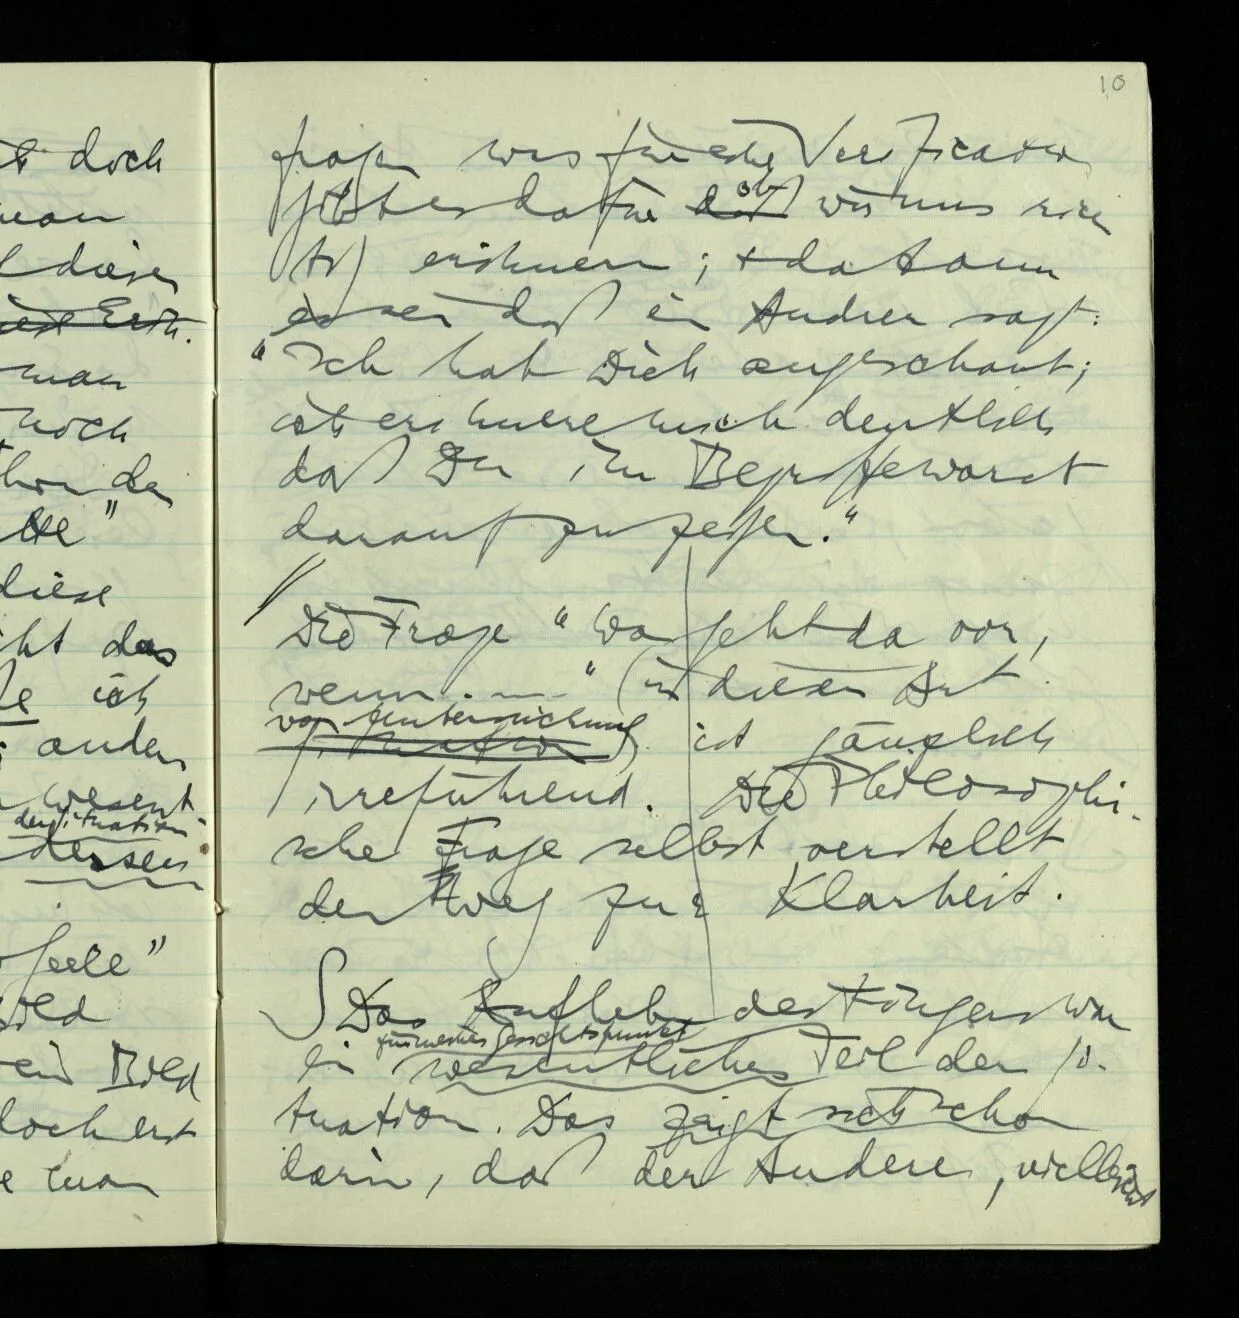 doch
man
diesen
man
noch
diese
das
ich
anders
wesent-
der Situation
dessen
Seele"
Bild
ein Bild
doch erst
man
10
fragen was für eine Verification
gibt es dafür daß ob wir uns rich
tig erinnern; + da kann
es sein daß ein Anderer sagt:
"Ich hab Dich angeschaut;
ich erinnere mich deutlich
daß Du im Begriffe warst
darauf zu zeigen."
// Die Frage "Was geht da vor,
wenn . — —" (in dieser Art
von Untersuchung
ist gänzlich
irreführend. Die Philosophi-
sche Frage selbst verstellt
den Weg zur Klarheit.
∫ Das Aufheben des Fingers war
für welchen Gesichtspunkt
ein wesentlicher Teil der Si-
tuation. Das zeigt sich schon
darin, daß der Andere, vielleicht